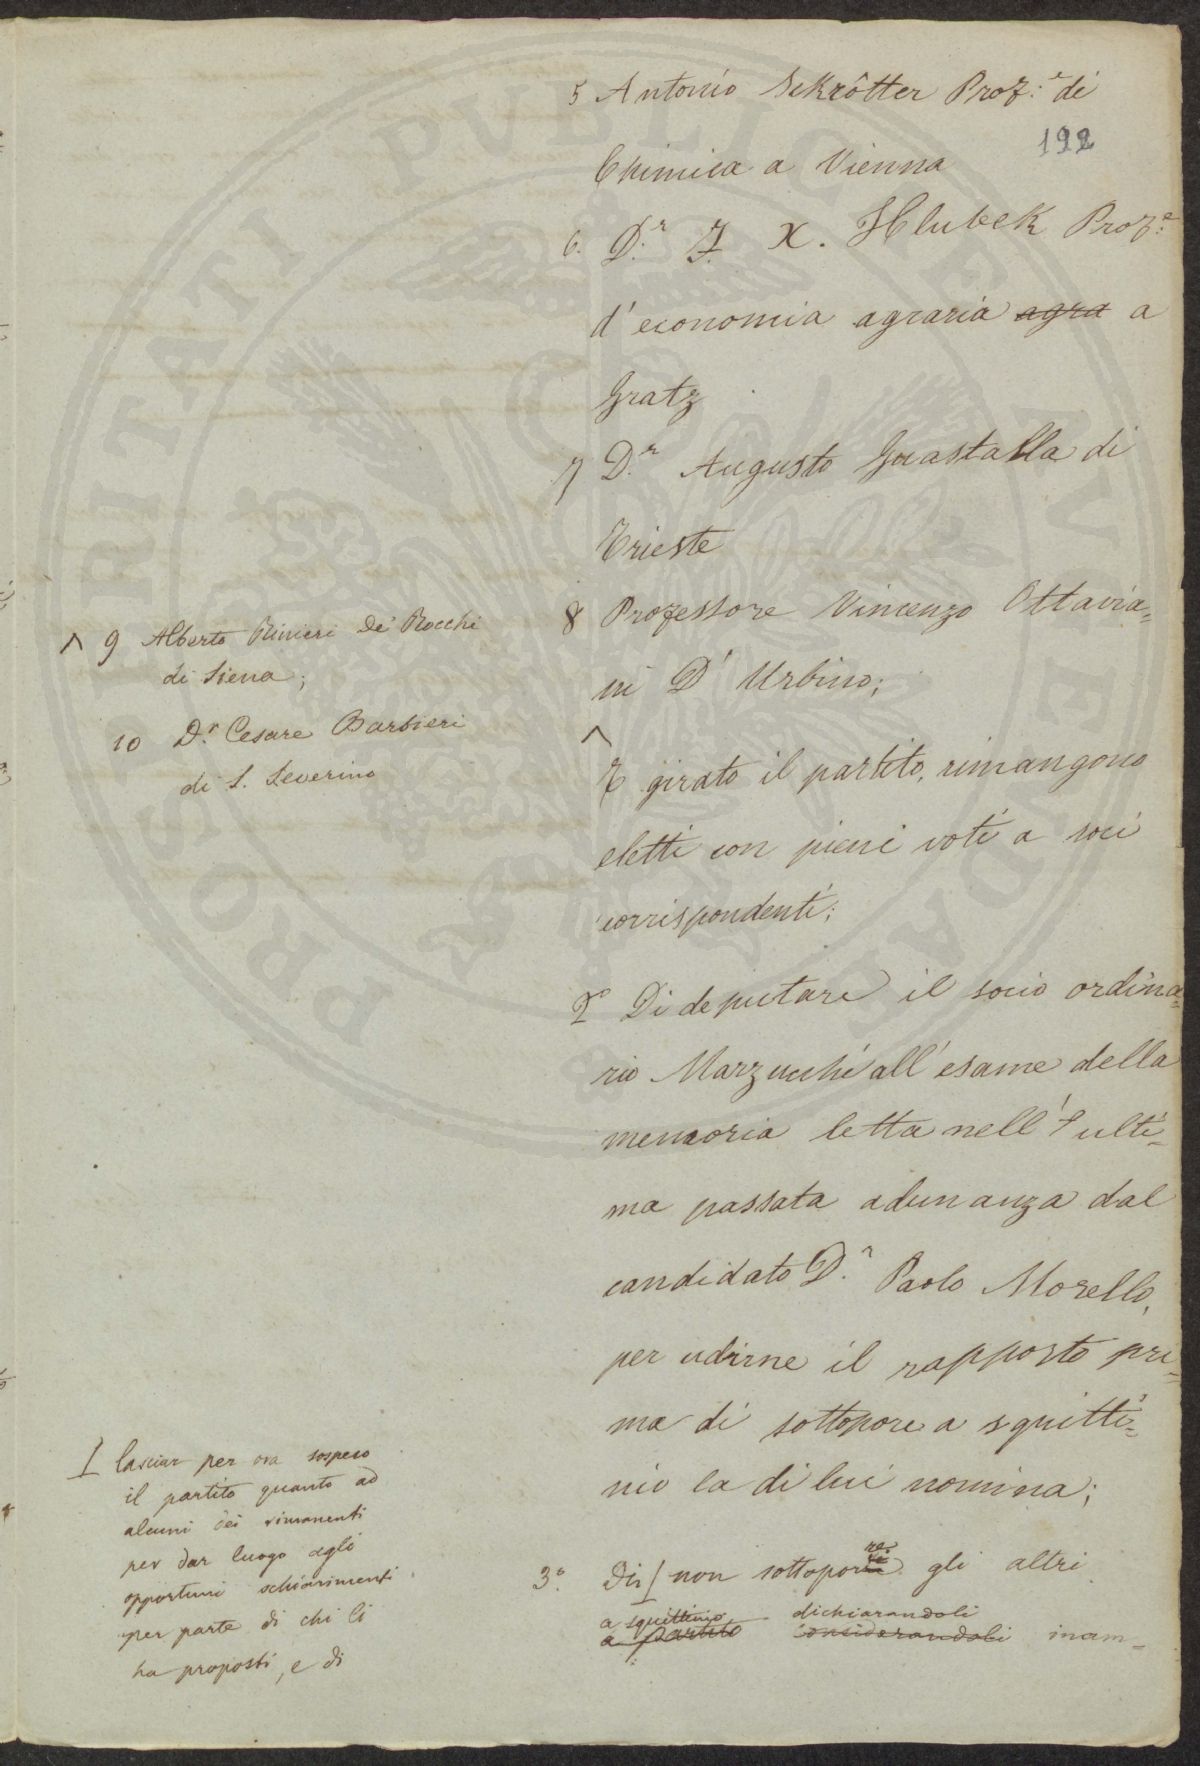 5 Antonio Sckrôtter Prof:ᵉ di
192
Chimica a Vienna
6. D.ʳ F. X. Hlubek Prof:ᵉ
d'economia agraria agra a
Gratz
7 D.ʳ Augusto Guastalla di
Trieste
8 Professore Vincenzo Ottavia=
ni D'Urbino;
^
E girato il partito, rimangono
eletti con pieni voti a soci
corrispondenti;
2º Di deputare il socio ordina=
rio Marzucchi all'esame della
memoria letta nell'ulti=
ma passata adunanza dal
candidato D.ʳ Paolo Morello,
per udirne il rapposto pri=
ma di sottopore a squitti=
nio la di lui nomina;
3º. Di / non sottoporre gli altri
a squittinio dichiarandoli
a partito considerandoli inam=
^ 9 Alberto Rinieri De' Rocchi
di Siena;
10 D.ʳ Cesare Barbieri
di S. Severino
/ lasciar per ora sospeso
il partito quanto ad
alcuni dei rimanenti
per dar luogo agli
opportuni schiarimenti
per parte di chi li
ha proposti, e di
PROSPERITATI PUBLICAE AUGENDAE